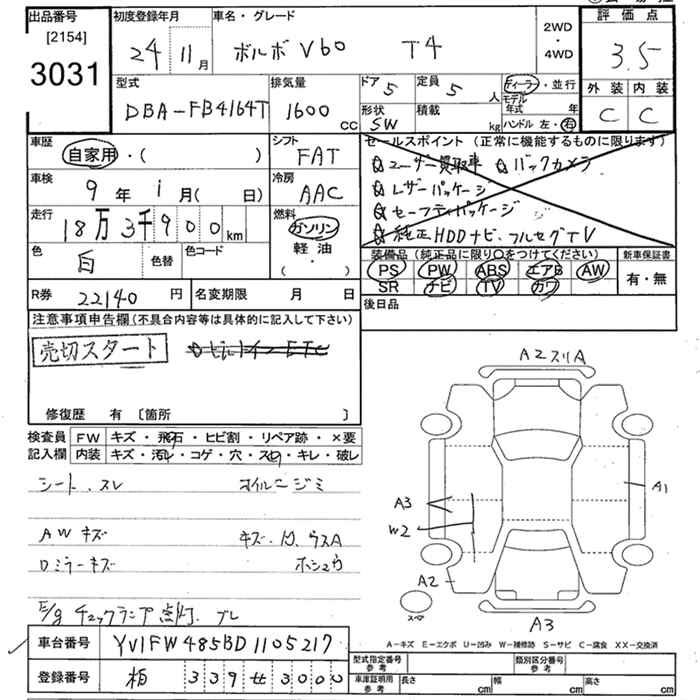 出品番号
[2154]
3031
初度登録年月
24 11月
車名・グレード
ボルボ V60 T4
2WD
・
4WD
評価点
3.5
外装 内装
C C
型式
DBA-FB4164T
排気量
1600 cc
ドア 5
定員 5 人
形状 SW
積載 kg
ディーラー・並行
モデル年式 年
ハンドル 左・右
車歴
自家用・( )
シフト
FAT
車検
9年1月( 日)
冷房
AAC
走行
18万3千900km
燃料
ガソリン
軽油
・
( )
色
白
色替
色コード
R券 22140円
名変期限 月 日
セールスポイント(正常に機能するものに限ります)
☆ユーザー買取車 ☆バックカメラ
☆レザーパッケージ
☆セーフティパッケージ
☆純正HDDナビ・フルセグTV
装備品(純正品に限り○をつけてください)
PS PW ABS エアB AW
SR ナビ TV カワ
新車保証書
有・無
後日品
注意事項申告欄(不具合内容等は具体的に記入して下さい)
売切スタート
ビルトインETC
修復歴 有 [箇所 ]
検査員記入欄
FW キズ・飛石・ヒビ割・リペア跡・×要
内装 キズ・汚レ・コゲ・穴・スレ・キレ・破レ
シート スレ オイルニジミ
AWキズ
Dミラーキズ
E/gチェックランプ点灯. ブレ
A2スリA
A3
W2
A1
A2
スペア
A3
A-キズ E-エクボ U-凹み W-補修跡 S-サビ C-腐食 XX-交換済
車台番号 YV1FW485BD1105217
登録番号 柏 339 せ 3000
型式指定番号 参考
類別区分番号 参考
車庫証明用 参考
長さ cm 幅 cm 高さ cm